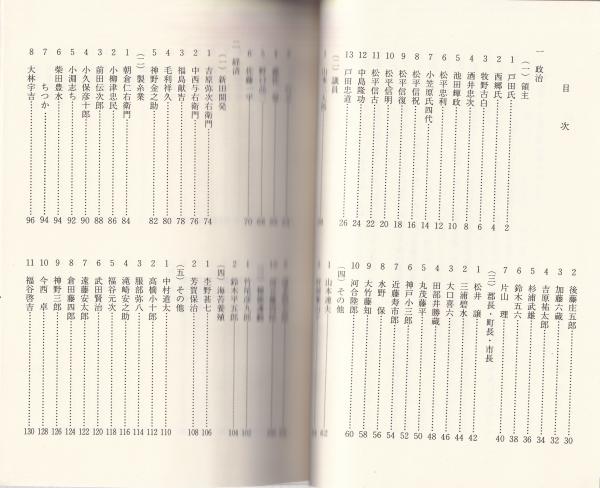 目次
一 政治
(一) 領主
1 戸田氏……2
2 西郷氏……4
3 牧野古白……6
4 酒井忠次……8
5 池田輝政……10
6 松平忠利……12
7 小笠原氏四代……14
8 松平信祝……16
9 松平信復……18
10 松平信明……20
11 松平信古……22
12 中島隆功……24
13 戸田忠道……26
(二) 議員
2 後藤庄五郎……30
3 加藤六蔵……32
4 吉原祐太郎……34
5 杉浦武雄……36
6 鈴木五六……38
7 片山 理……40
(三) 郡長・町長・市長
1 松井 譲……42
2 三浦碧水……44
3 大口喜六……46
4 田部井勝蔵……48
5 丸茂藤平……50
6 神戸小三郎……52
7 近藤寿市郎……54
8 水野 保……56
9 大竹藤知……58
10 河合陸郎……60
(四) その他
6 佐藤一平……70
二 経済
(一) 新田開発
1 吉原弥次右衛門……74
2 中西与右衛門……76
3 福島献吉……78
4 毛利祥久……80
5 神野金之助……82
(二) 製糸業
1 朝倉仁右衛門……84
2 小柳津忠民……86
3 前田伝次郎……88
4 小久保彦十郎……90
5 小淵志ち……92
6 柴田豊水……94
7 ちつか……94
8 大林宇吉……96
2 鈴木平五郎……104
(四) 海苔養殖
1 李野甚七……106
2 芳賀保治……108
(五) その他
1 中村道太……110
2 高橋小十郎……112
3 服部弥八……114
4 滝崎安之助……116
5 福谷元次……118
6 武田賢治……120
7 遠藤安太郎……122
8 倉田藤四郎……124
9 神野三郎……126
10 今西 卓……128
11 福谷啓吉……130